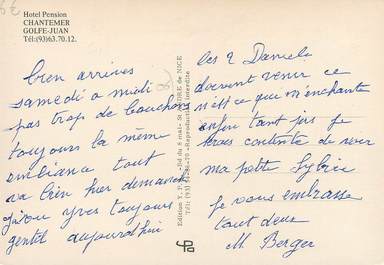 Hotel Pension
CHANTEMER
GOLFE-JUAN
Tél:(93)63.70.12.
bien arrives
samedi a midi
pas trop de bouchons
toujours la même
embiance tout
va bien hier dimanche
Yves toujours
gentil aujourdhui
Edition X. P. Bd du 8 mai St ANDRE de NICE
Tél: (93) Reproduction Interdite
les 2 Daniels
doivent venir ce
n'est ce que m'enchante
enfin tant pis je
serais contente de voir
ma petite Sylvie
je vous embrasse
tout deux
M. Berger